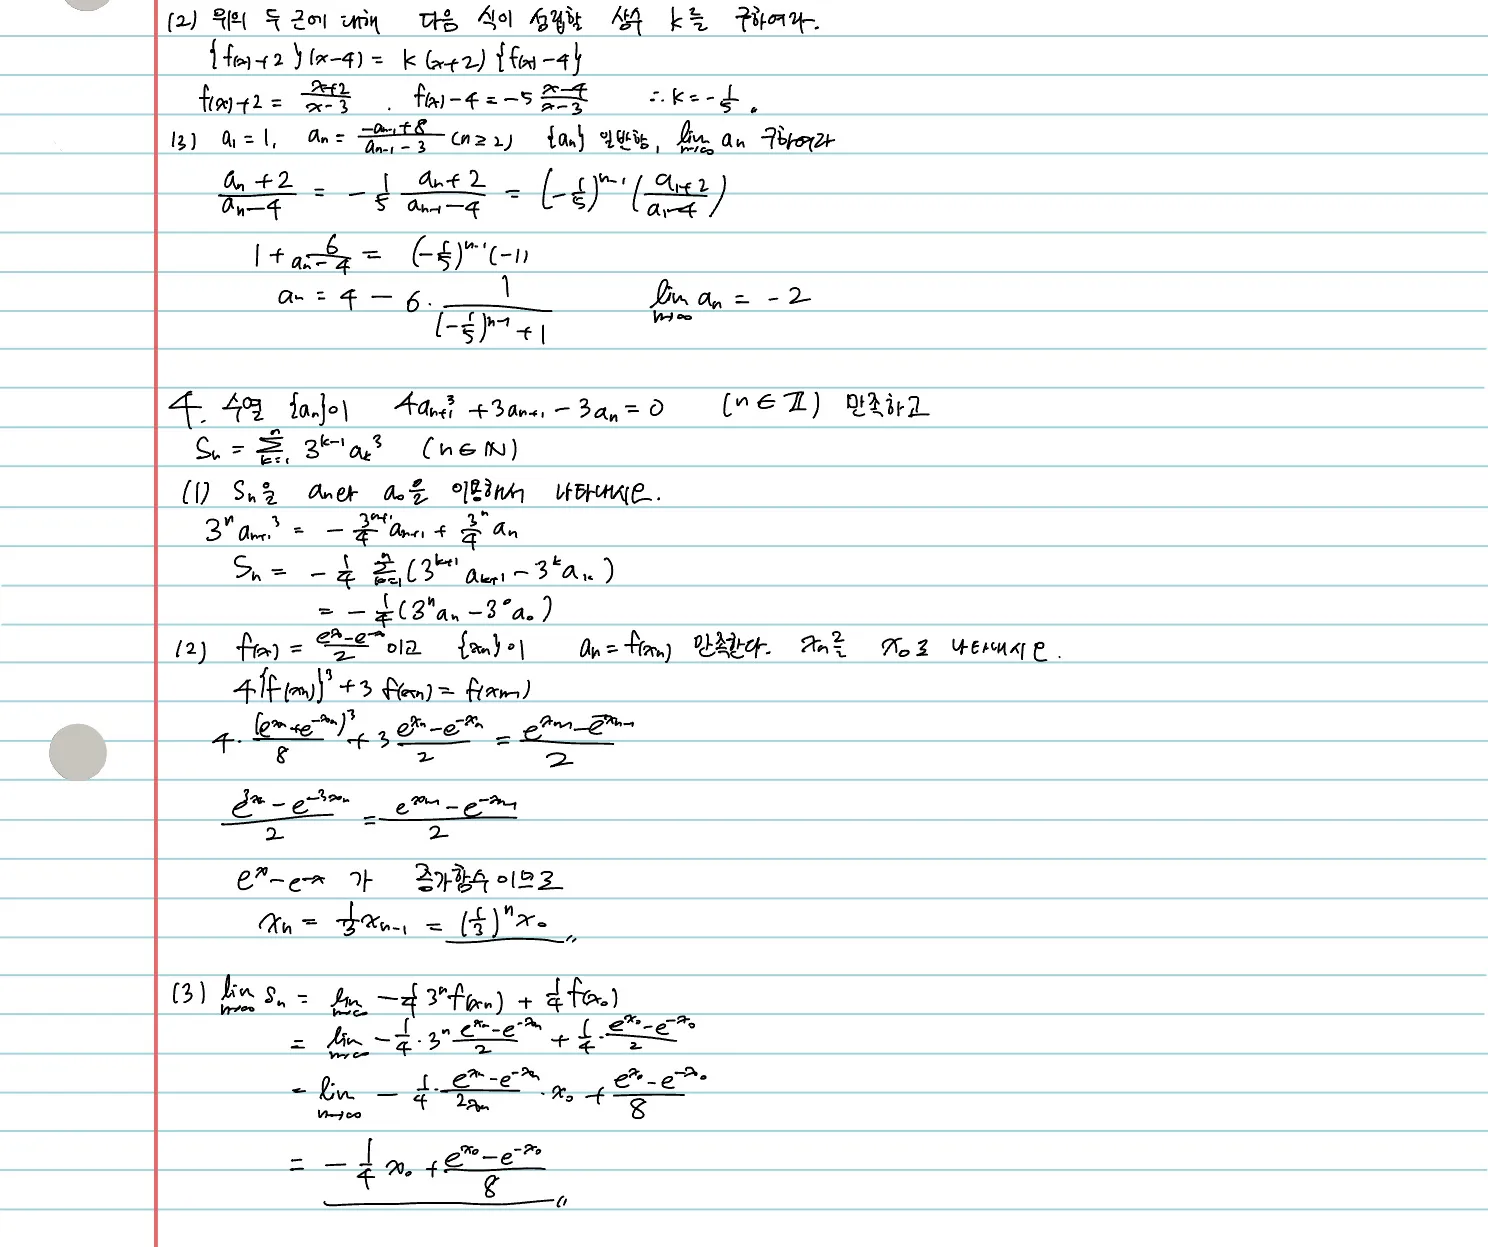 (2) 위의 두 근에 대해 다음 식이 성립할 상수 k를 구하여라.
{f(x)+2}(x-4) = k(x+2){f(x)-4}
f(x)+2 = \frac{x+2}{x-3} . f(x)-4 = -5\frac{x-4}{x-3} ∴ k = -\frac{1}{5}.
(3) a_1 = 1, a_n = \frac{-a_{n-1}+8}{a_{n-1}-3} (n≥2) {a_n} 일반항, \lim_{n→∞} a_n 구하여라
\frac{a_n+2}{a_n-4} = -\frac{1}{5} \frac{a_n+2}{a_{n-1}-4} = (-\frac{1}{5})^{n-1} (\frac{a_1+2}{a_1-4})
1+\frac{6}{a_n-4} = (-\frac{1}{5})^{n-1}(-1)
a_n = 4 - 6·\frac{1}{(-\frac{1}{5})^{n-1}+1} \lim_{n→∞} a_n = -2
4. 수열 {a_n}이 4a_{n+1}^3 + 3a_{n+1} - 3a_n = 0 (n∈ℤ) 만족하고
S_n = \sum_{k=1}^{n} 3^{k-1} a_k^3 (n∈ℕ)
(1) S_n을 a_n와 a_0을 이용해서 나타내시오.
3^n a_{n+1}^3 = -\frac{3^{n+1}}{4} a_{n+1} + \frac{3^n}{4} a_n
S_n = -\frac{1}{4} \sum_{k=1}^{n} (3^{k+1} a_{k+1} - 3^k a_k)
= -\frac{1}{4}(3^n a_n - 3^0 a_0)
(2) f(x) = \frac{e^x-e^{-x}}{2}이고 {x_n}이 a_n = f(x_n) 만족한다. x_n를 x_0로 나타내시오.
4{f(x_n)}^3 + 3f(x_n) = f(x_{n-1})
4·\frac{(e^{x_n}+e^{-x_n})^3}{8} + 3\frac{e^{x_n}-e^{-x_n}}{2} = \frac{e^{x_{n-1}}-e^{-x_{n-1}}}{2}
\frac{e^{3x_n}-e^{-3x_n}}{2} = \frac{e^{x_{n-1}}-e^{-x_{n-1}}}{2}
e^x-e^{-x} 가 증가함수이므로
x_n = \frac{1}{3}x_{n-1} = (\frac{1}{3})^n x_0
(3) \lim_{n→∞} S_n = \lim_{n→∞} -\frac{1}{4} 3^n f(x_n) + \frac{1}{4} f(x_0)
= \lim_{n→∞} -\frac{1}{4}·3^n \frac{e^{x_n}-e^{-x_n}}{2} + \frac{1}{4}·\frac{e^{x_0}-e^{-x_0}}{2}
= \lim_{n→∞} -\frac{1}{4}·\frac{e^{x_n}-e^{-x_n}}{2x_n}·x_0 + \frac{e^{x_0}-e^{-x_0}}{8}
= -\frac{1}{4}x_0 + \frac{e^{x_0}-e^{-x_0}}{8}